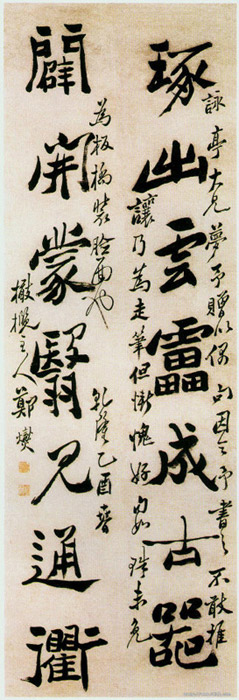 琢出雲靁成古器
詠亭大兄夢予贈以偶句因令予書之不敢推
讓乃為走筆但慚愧好句如珠未免
闢開蒙翳見通衢
為板橋裝臉面也
乾隆乙酉春
橄欖主人鄭燮